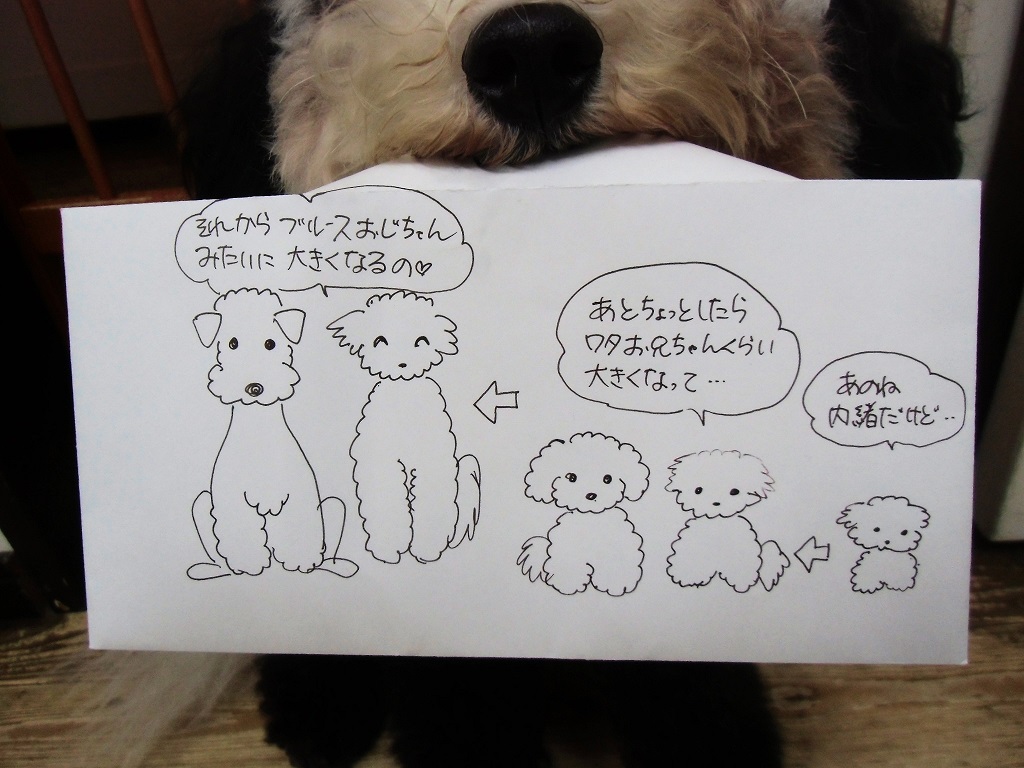 あのね
内緒だけど‥
あとちょっとしたら
ワタお兄ちゃんくらい
大きくなって…
それから ブルースおじちゃん
みたいに 大きくなるの♡